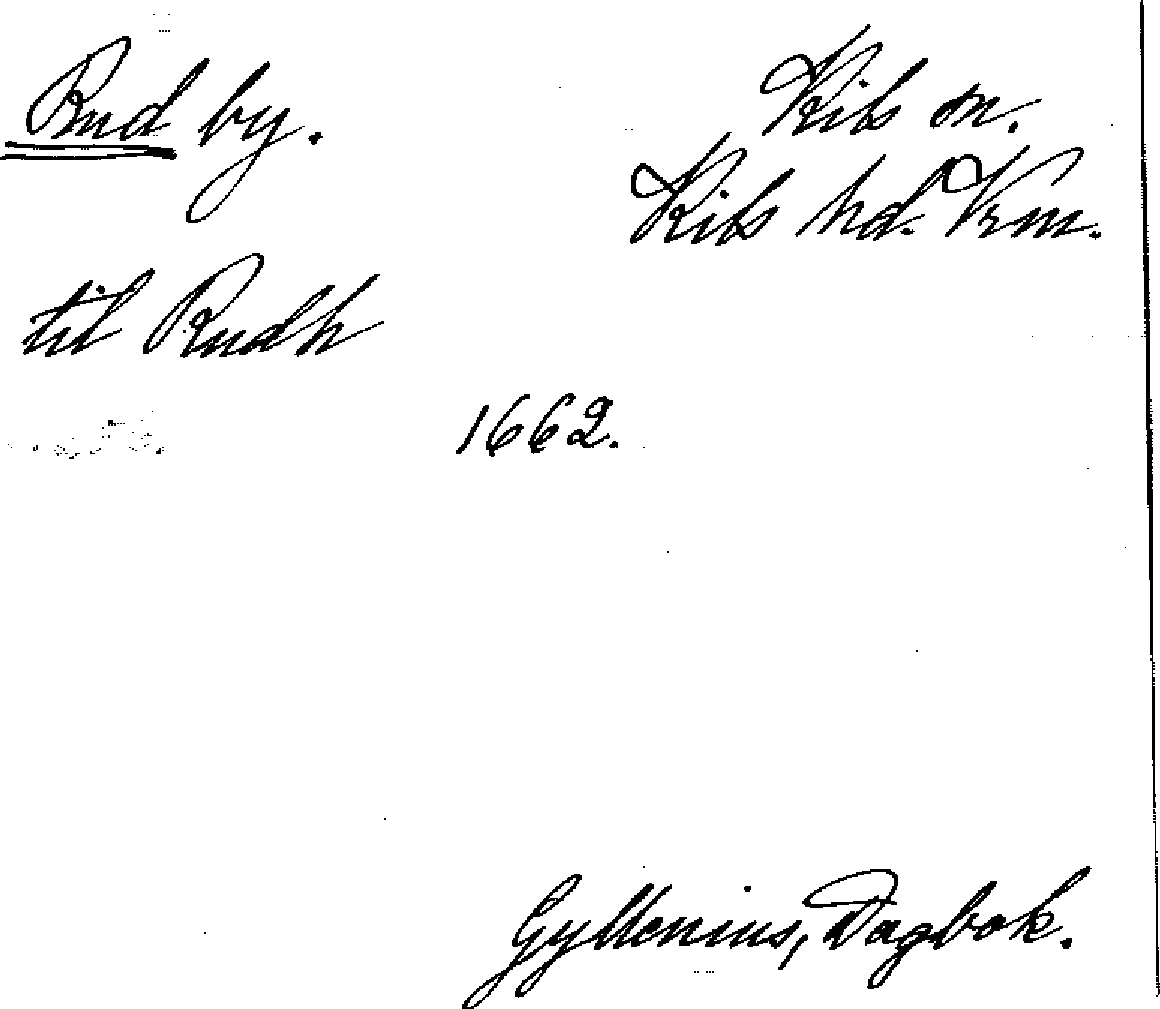 Rud by.
Kils sn.
Kils hd. Vrm.
til Rudh
1662.
Gyllenius, Dagbok.